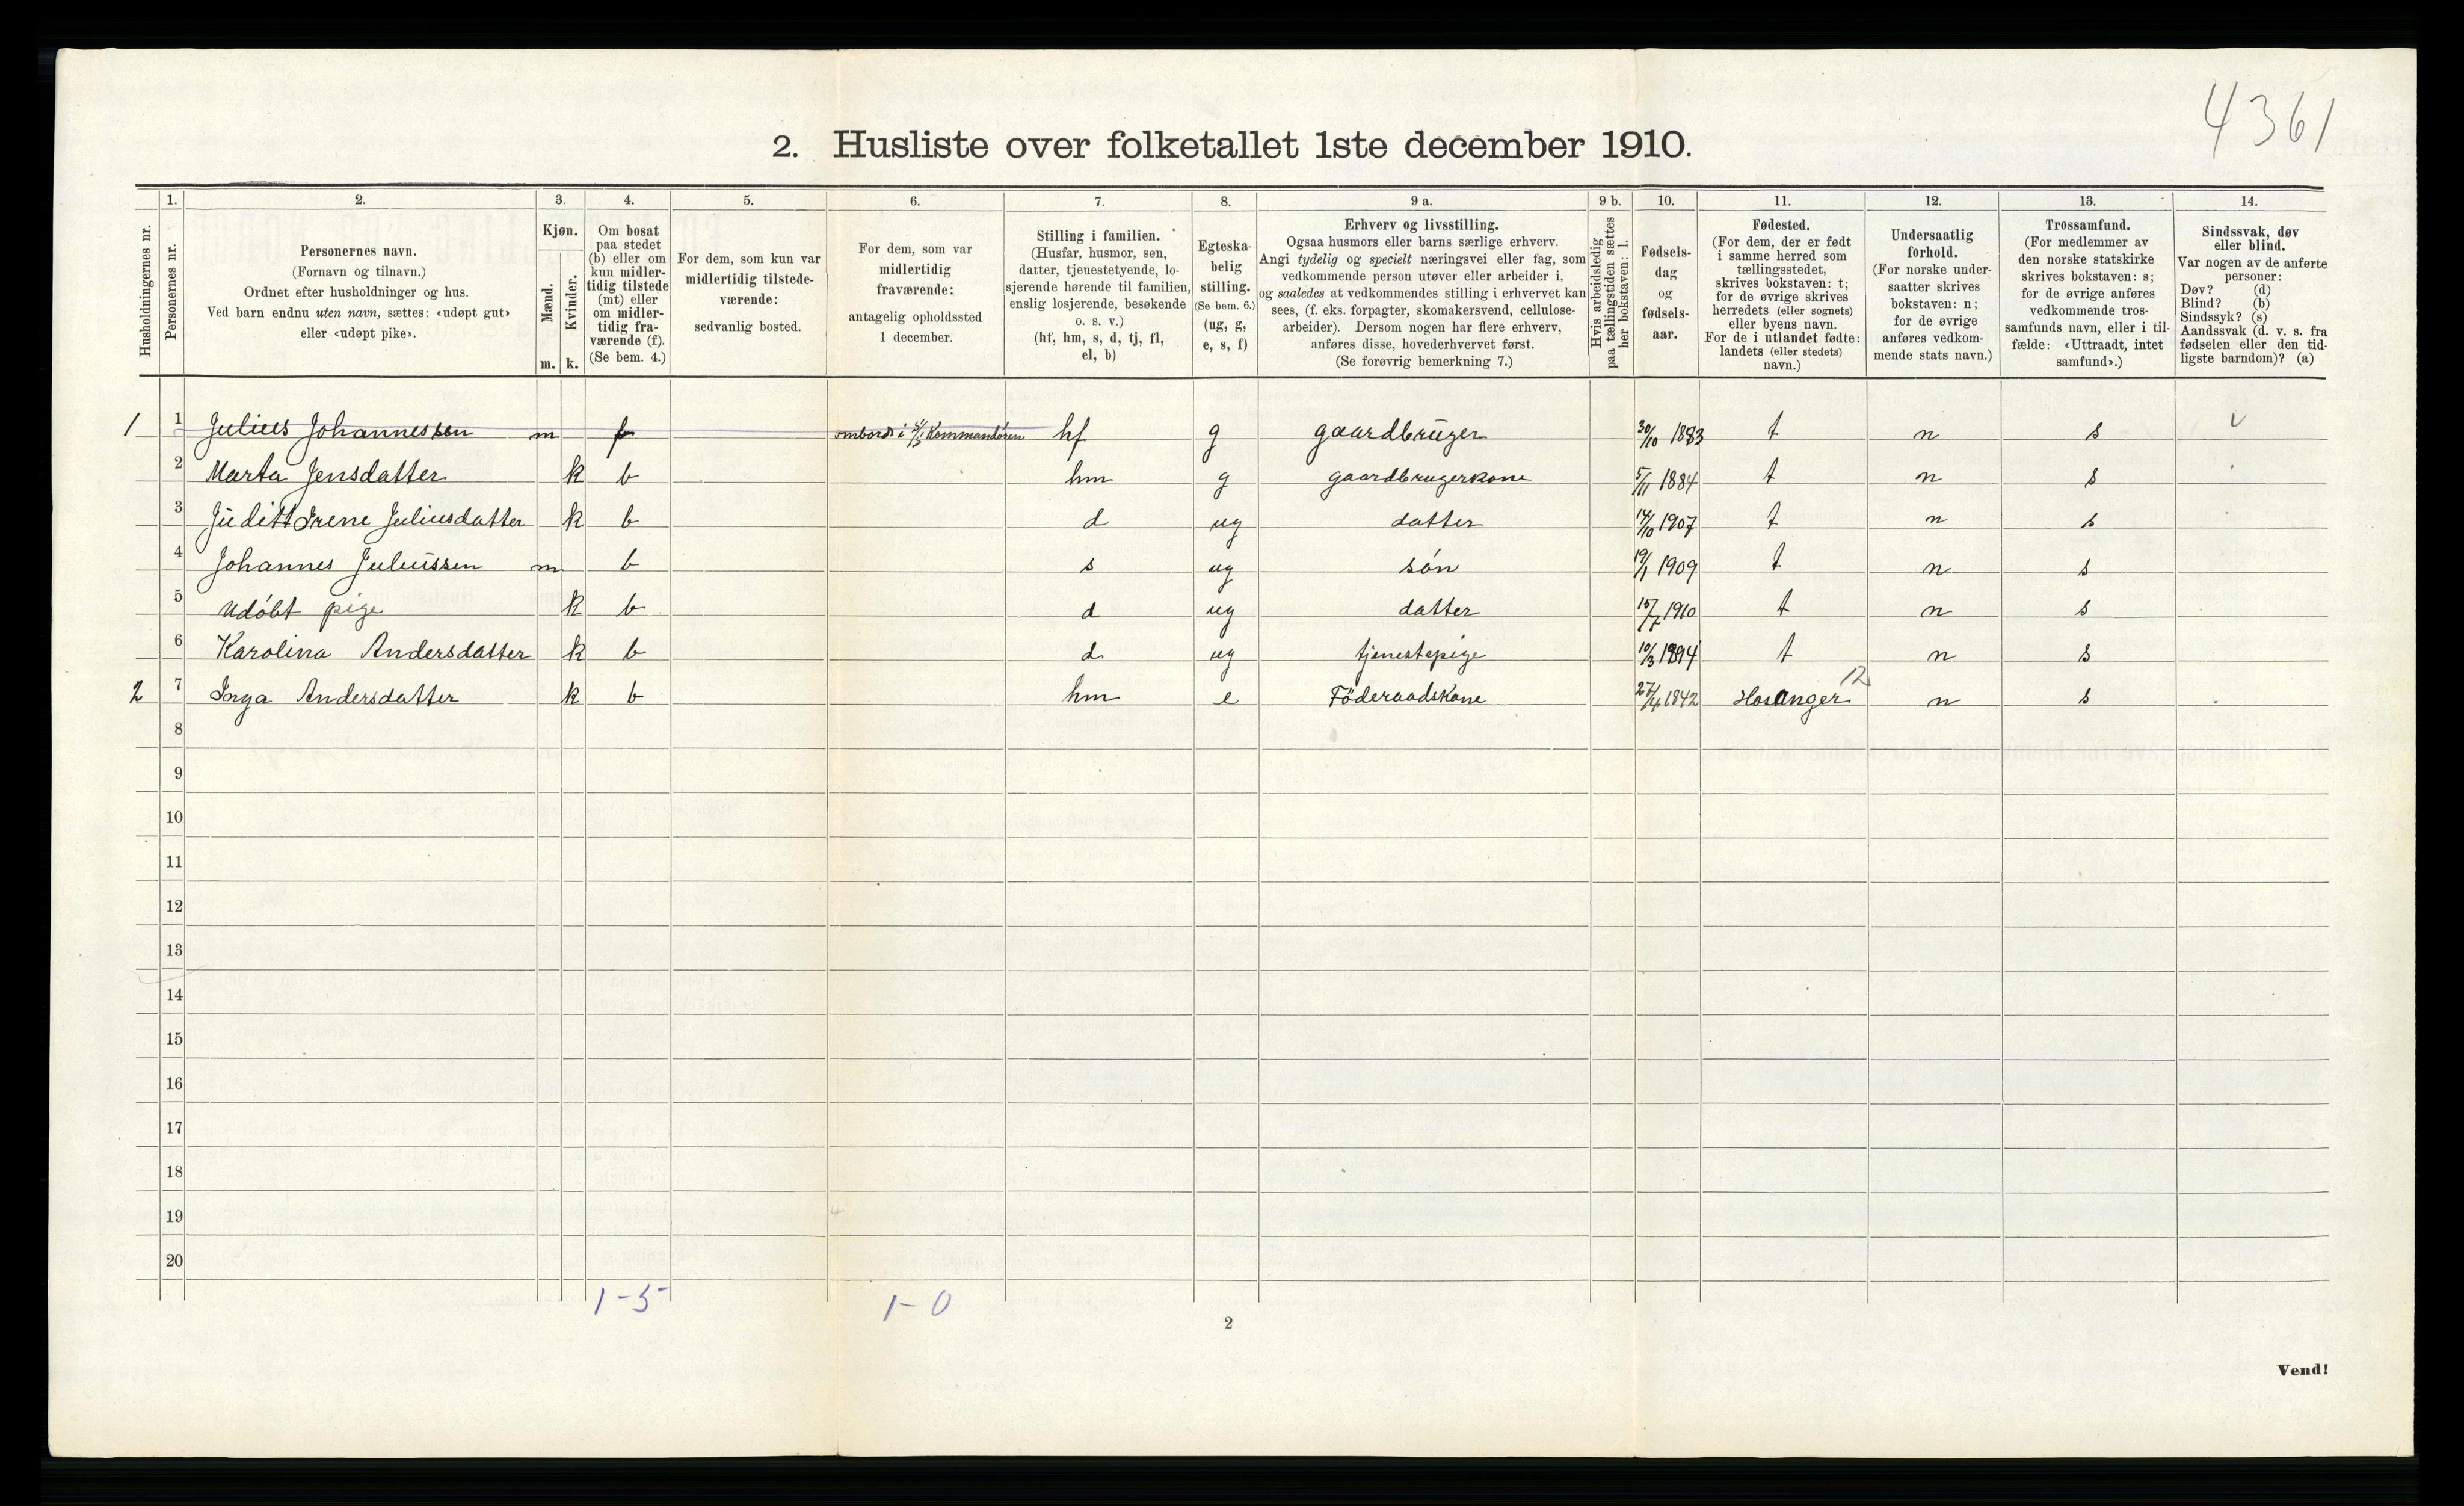 4361
2. Husliste over folketallet 1ste december 1910.
Husholdningernes nr.
1.
Personernes nr.
2.
Personernes navn.
(Fornavn og tilnavn.)
Ordnet efter husholdninger og hus.
Ved barn endnu uten navn, sættes: «udøpt gut»
eller «udøpt pike».
3.
Kjøn.
Mænd.
Kvinder.
m. k.
4.
Om bosat
paa stedet
(b) eller om
kun midler-
tidig tilstede
(mt) eller
om midler-
tidig fra-
værende (f).
(Se bem. 4.)
5.
For dem, som kun var
midlertidig tilstede-
værende:
sedvanlig bosted.
6.
For dem, som var
midlertidig
fraværende:
antagelig opholdssted
1 december.
7.
Stilling i familien.
(Husfar, husmor, søn,
datter, tjenestetyende, lo-
sjerende hørende til familien,
enslig losjerende, besøkende
o. s. v.)
(hf, hm, s, d, tj, fl,
el, b)
8.
Egteska-
belig
stilling.
(Se bem. 6.)
(ug, g,
e, s, f)
9 a.
Erhverv og livsstilling.
Ogsaa husmors eller barns særlige erhverv.
Angi tydelig og specielt næringsvei eller fag, som
vedkommende person utøver eller arbeider i,
og saaledes at vedkommendes stilling i erhvervet kan
sees, (f. eks. forpagter, skomakersvend, cellulose-
arbeider). Dersom nogen har flere erhverv,
anføres disse, hovederhvervet først.
(Se forøvrig bemerkning 7.)
9 b.
Hvis arbeidsledig
paa tællingstiden sættes
her bokstaven: l.
10.
Fødsels-
dag
og
fødsels-
aar.
11.
Fødested.
(For dem, der er født
i samme herred som
tællingsstedet,
skrives bokstaven: t;
for de øvrige skrives
herredets (eller sognets)
eller byens navn.
For de i utlandet fødte:
landets (eller stedets)
navn.)
12.
Undersaatlig
forhold.
(For norske under-
saatter skrives
bokstaven: n;
for de øvrige
anføres vedkom-
mende stats navn.)
13.
Trossamfund.
(For medlemmer av
den norske statskirke
skrives bokstaven: s;
for de øvrige anføres
vedkommende tros-
samfunds navn, eller i til-
fælde: «Uttraadt, intet
samfund».)
14.
Sindssvak, døv
eller blind.
Var nogen av de anførte
personer:
Døv? (d)
Blind? (b)
Sindssyk? (s)
Aandssvak (d. v. s. fra
fødselen eller den tid-
ligste barndom)? (a)
1 1 Julius Johannessen m f ombord i Kommandøren hf g gaardbruger 30/10 1883 t n s v
2 Marta Jensdatter k b hm g gaardbrugerkone 5/11 1884 t n s
3 Juditt Irene Juliusdatter k b d ug datter 14/10 1907 t n s
4 Johannes Juliussen m b s ug søn 19/1 1909 t n s
5 Udøbt pige k b d ug datter 15/7 1910 t n s
6 Karolina Andersdatter k b d ug tjenestepige 10/3 1894 t n s
2 7 Inga Andersdatter k b hm e Föderaadskone 27/4 1842 Hosanger 12 n s
8
9
10
11
12
13
14
15
16
17
18
19
20
1-5 1-0
2
Vend!